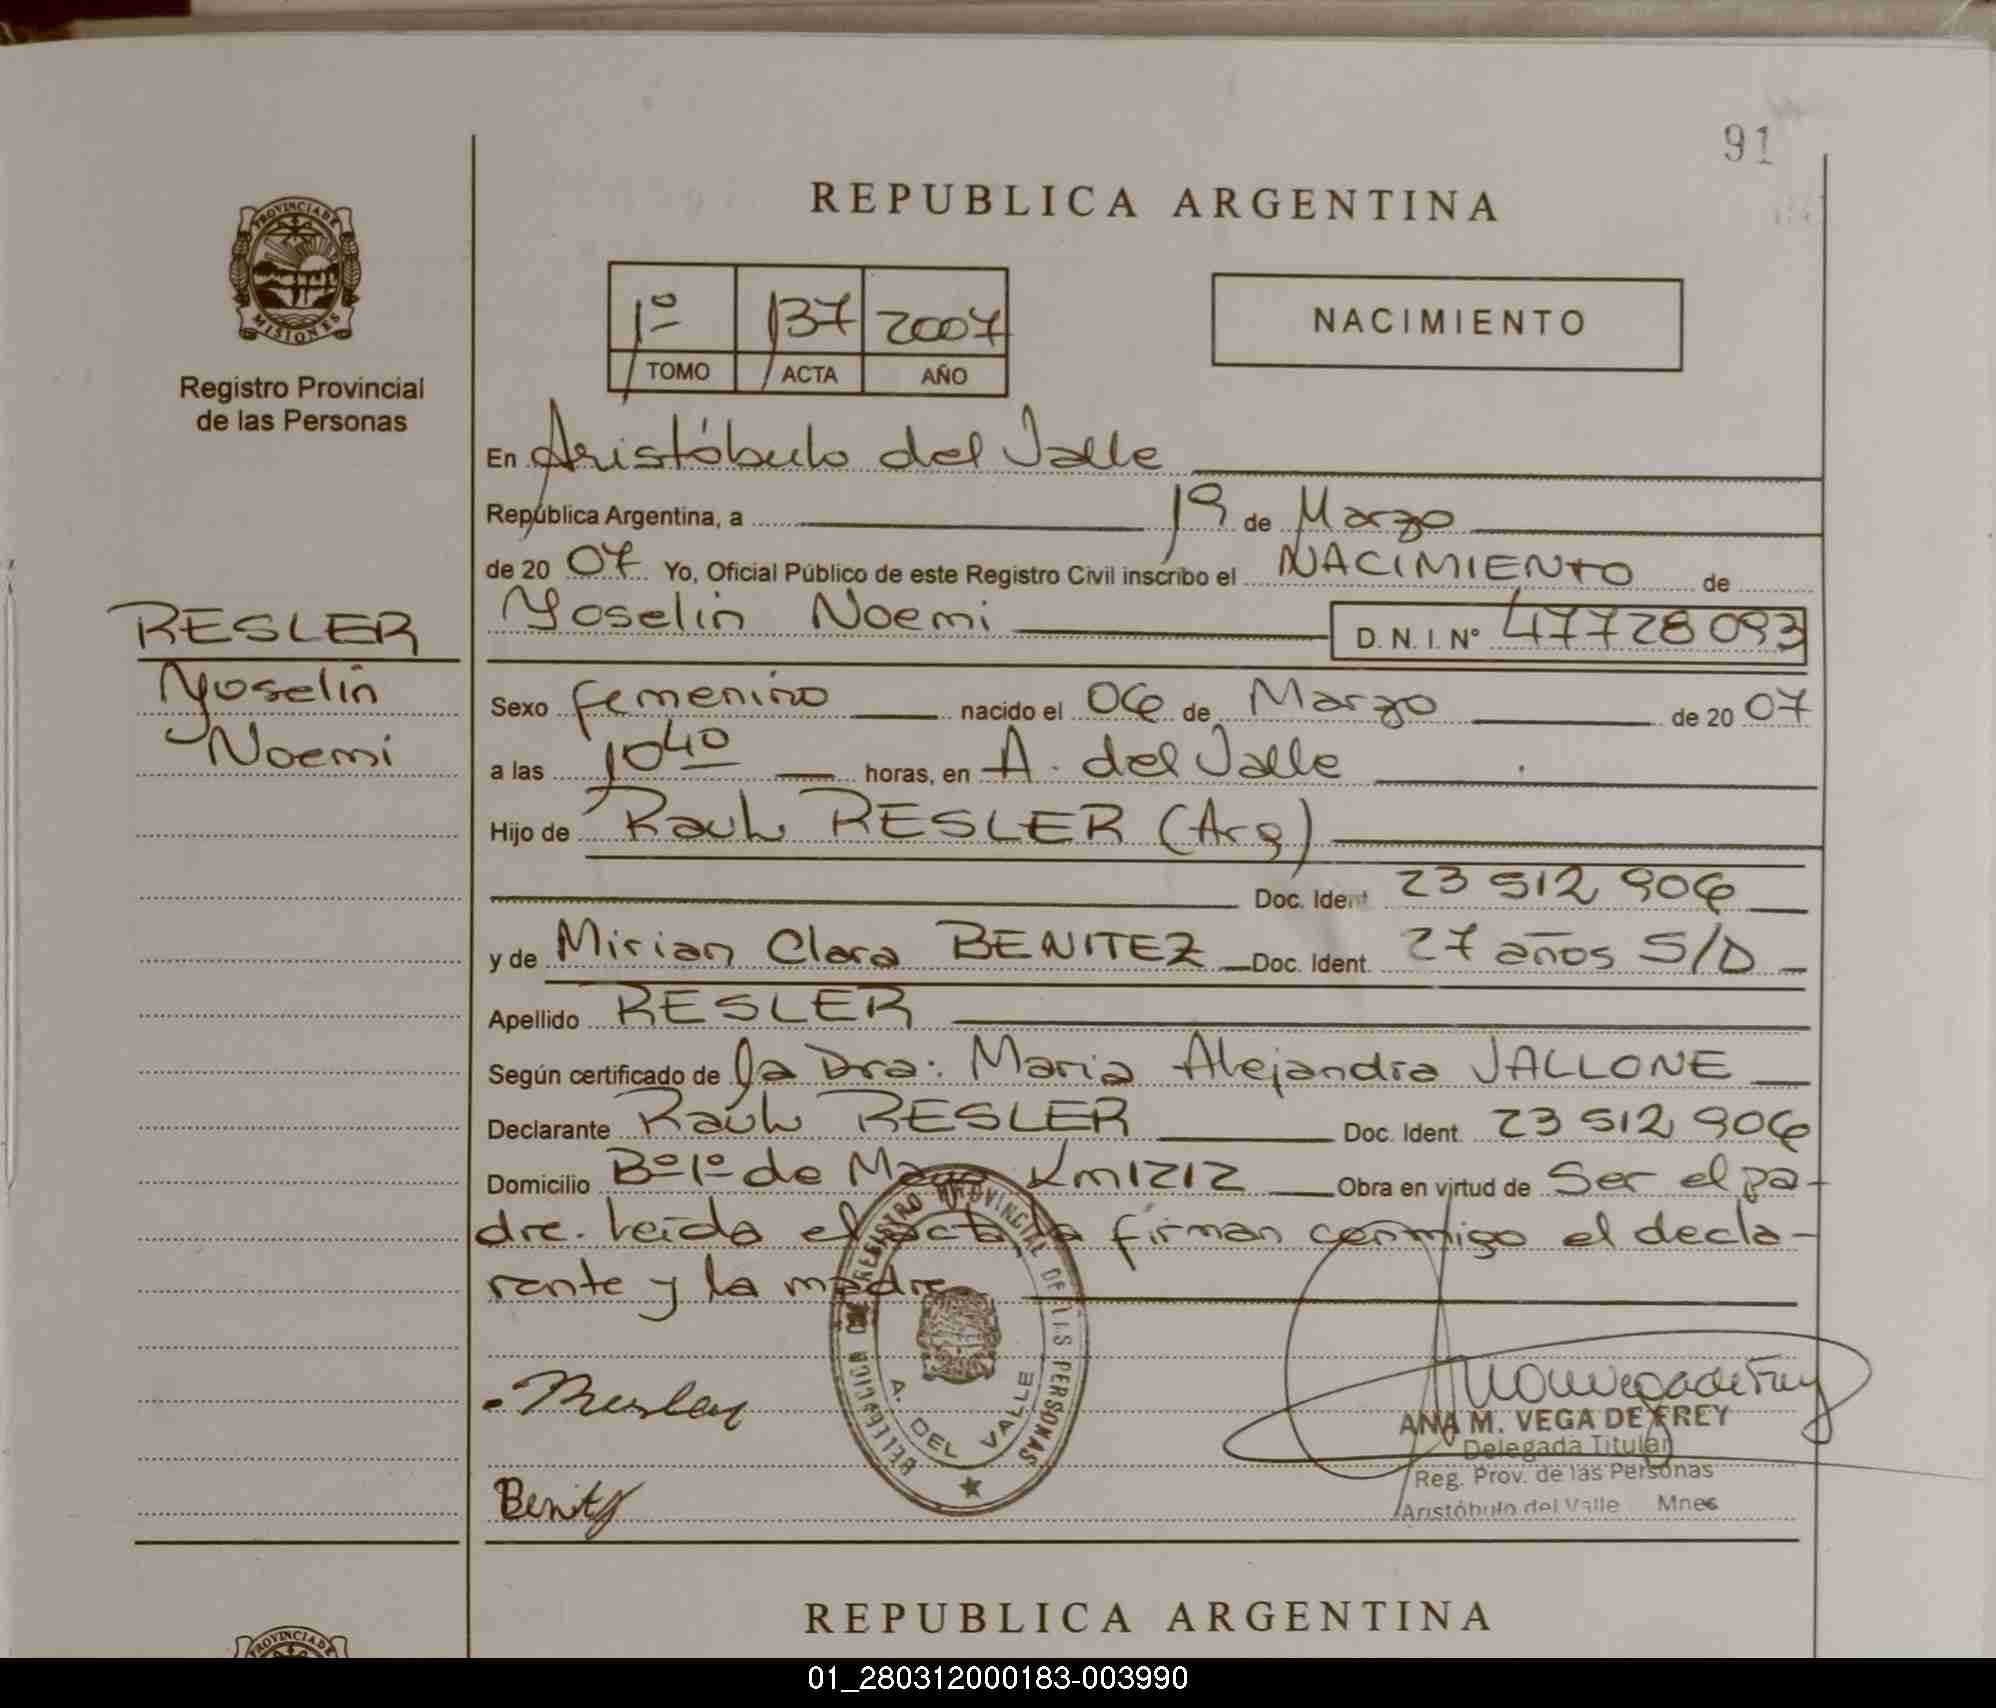 91
REPUBLICA ARGENTINA
PROVINCIA DE
MISIONES
Registro Provincial
de las Personas
1º 137 2007
TOMO ACTA AÑO
NACIMIENTO
En Aristóbulo del Valle
República Argentina, a 19 de Marzo
de 20 07 Yo, Oficial Público de este Registro Civil inscribo el NACIMIENTO de
RESLER
Yoselin
Noemi
Yoselin Noemi D. N. I. Nº 47728093
Sexo femenino nacido el 06 de Marzo de 20 07
a las 10 40 horas, en A. del Valle
Hijo de Raul RESLER (Arg)
Doc. Ident 23 512 906
y de Mirian Clara BENITEZ Doc. Ident. 27 años S/D
Apellido RESLER
Según certificado de la Dra: Maria Alejandra VALLONE
Declarante Raúl RESLER Doc. Ident. 23 512 906
Domicilio Bº 1º de Mayo Km 1212 Obra en virtud de Ser el pa-
dre. Leída el acta la firman conmigo el decla-
rante y la madre
Resler
Benitz
DELEGACION DE REGISTRO PROVINCIAL DE LAS PERSONAS
A. DEL VALLE
ANA M. VEGA DE FREY
Delegada Titular
Reg. Prov. de las Personas
Aristóbulo del Valle Mnes
REPUBLICA ARGENTINA
PROVINCIA DE
01_280312000183-003990